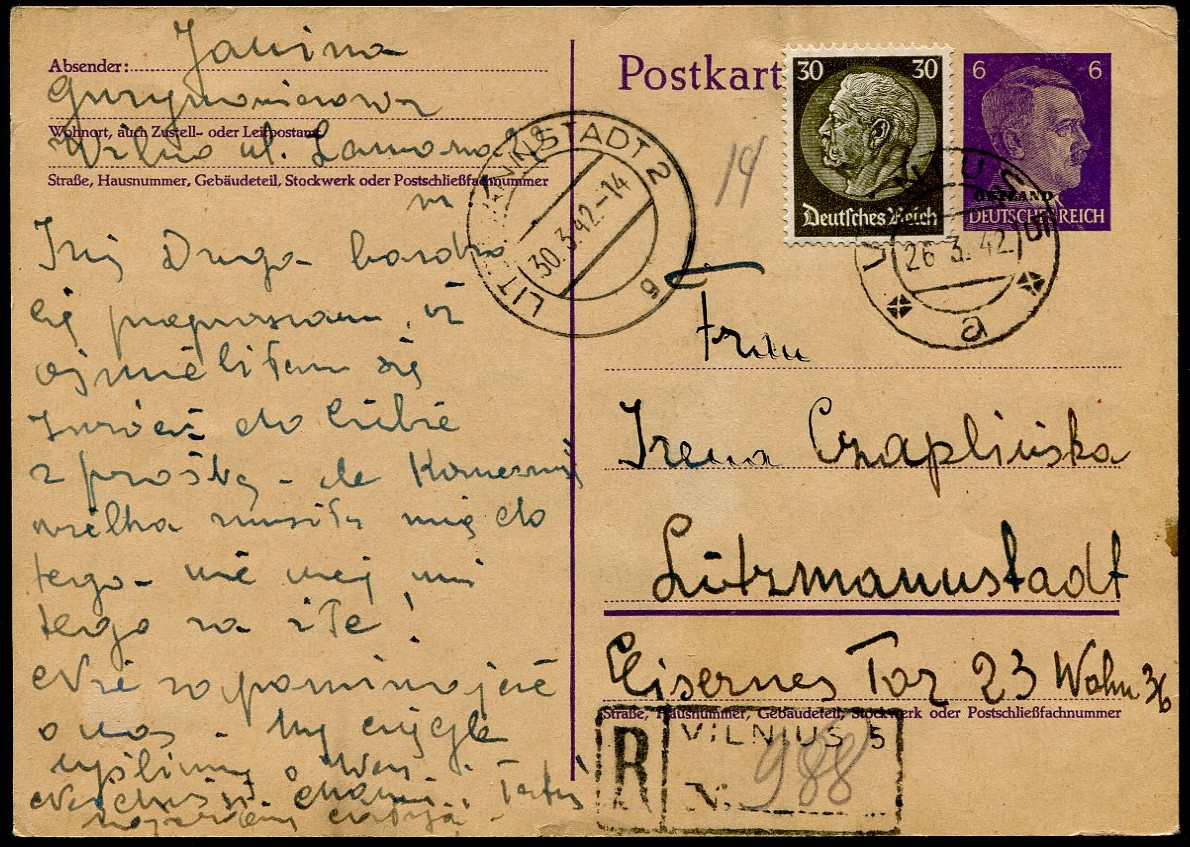 Absender: Janina
Wohnort, auch Zustell- oder Leitpostamt
Wilno ul.
Straße, Hausnummer, Gebäudeteil, Stockwerk oder Postschließfachnummer
Droga bardzo
Cię przepraszam, iż
ośmieliłam się
zwrócić do Ciebie
z prośbą - ale
wielka zmusiła mię do
tego - nie miej mi
tego za złe!
Nie zapominajcie
o nas - My ciągle
myślimy o Was
Postkart
30 30
Deutsches Reich
6 6
OSTLAND
DEUTSCHES REICH
14
LITZMANNSTADT 2
30.3.42.-14
VILNIUS 5
26 3. 42.
a
Frau
Irena Czaplińska
Litzmannstadt
Eisernes Tor 23 Wohn 36
Straße, Hausnummer, Gebäudeteil, Stockwerk oder Postschließfachnummer
R
VILNIUS 5
Nr. 988